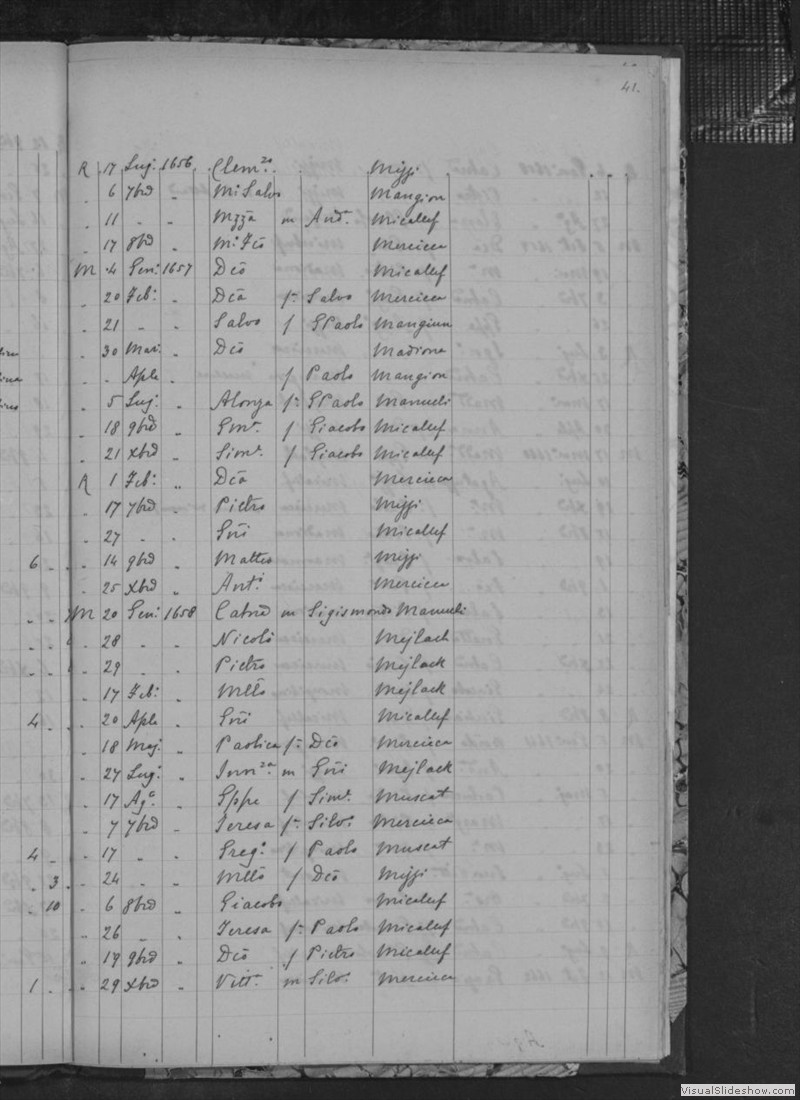 41.
R 17 Lug. 1656 Clem.za Mizzi
" 6 7bre " Mi Salvo Mangion
" 11 " " Mzza m Ant. Micallef
" 17 8bre " Mercieca
M 4 Gen. 1657 Dco Micallef
" 20 Feb. " Dca f. Salvo Mercieca
" 21 " " Salvo f GPaolo Mangion
" 30 Mar. " Dco Madiona
" Aple " f Paolo Mangion
" 5 Lug. " Alonza f. GPaolo Manueli
" 18 9bre " Gmo. f Giacobo Micallef
" 21 Xbre " Simo. f Giacobo Micallef
R 1 Feb. " Dca Mercieca
" 17 7bre " Pietro Mizzi
" 27 " " Gni Micallef
6 " 14 9bre " Matteo Mizzi
" 25 Xbre " Anti Mercieca
M 20 Gen. 1658 Catna m Sigismondo Manueli
" 28 " " Nicolò Mejlack
" 29 " " Pietro Mejlack
" 17 Feb. " Mejlack
4 " 20 Aple " Gni Micallef
" 18 Maj. " Paolica f. Dco Mercieca
" 27 Lug. " m Gni Mejlack
" 17 Ago " Gppe f Simo. Muscat
" 7 7bre " Teresa f. Silvo. Mercieca
4 " 17 " " Grego. f Paolo Muscat
3 " 24 " " f Dco Mizzi
10 " 6 8bre " Giacobo Micallef
" 26 " " Teresa f. Paolo Micallef
" 17 9bre " Dco f Pietro Micallef
1 " 29 Xbre " Vitt. m Silvo. Mercieca
VisualSlideshow.com